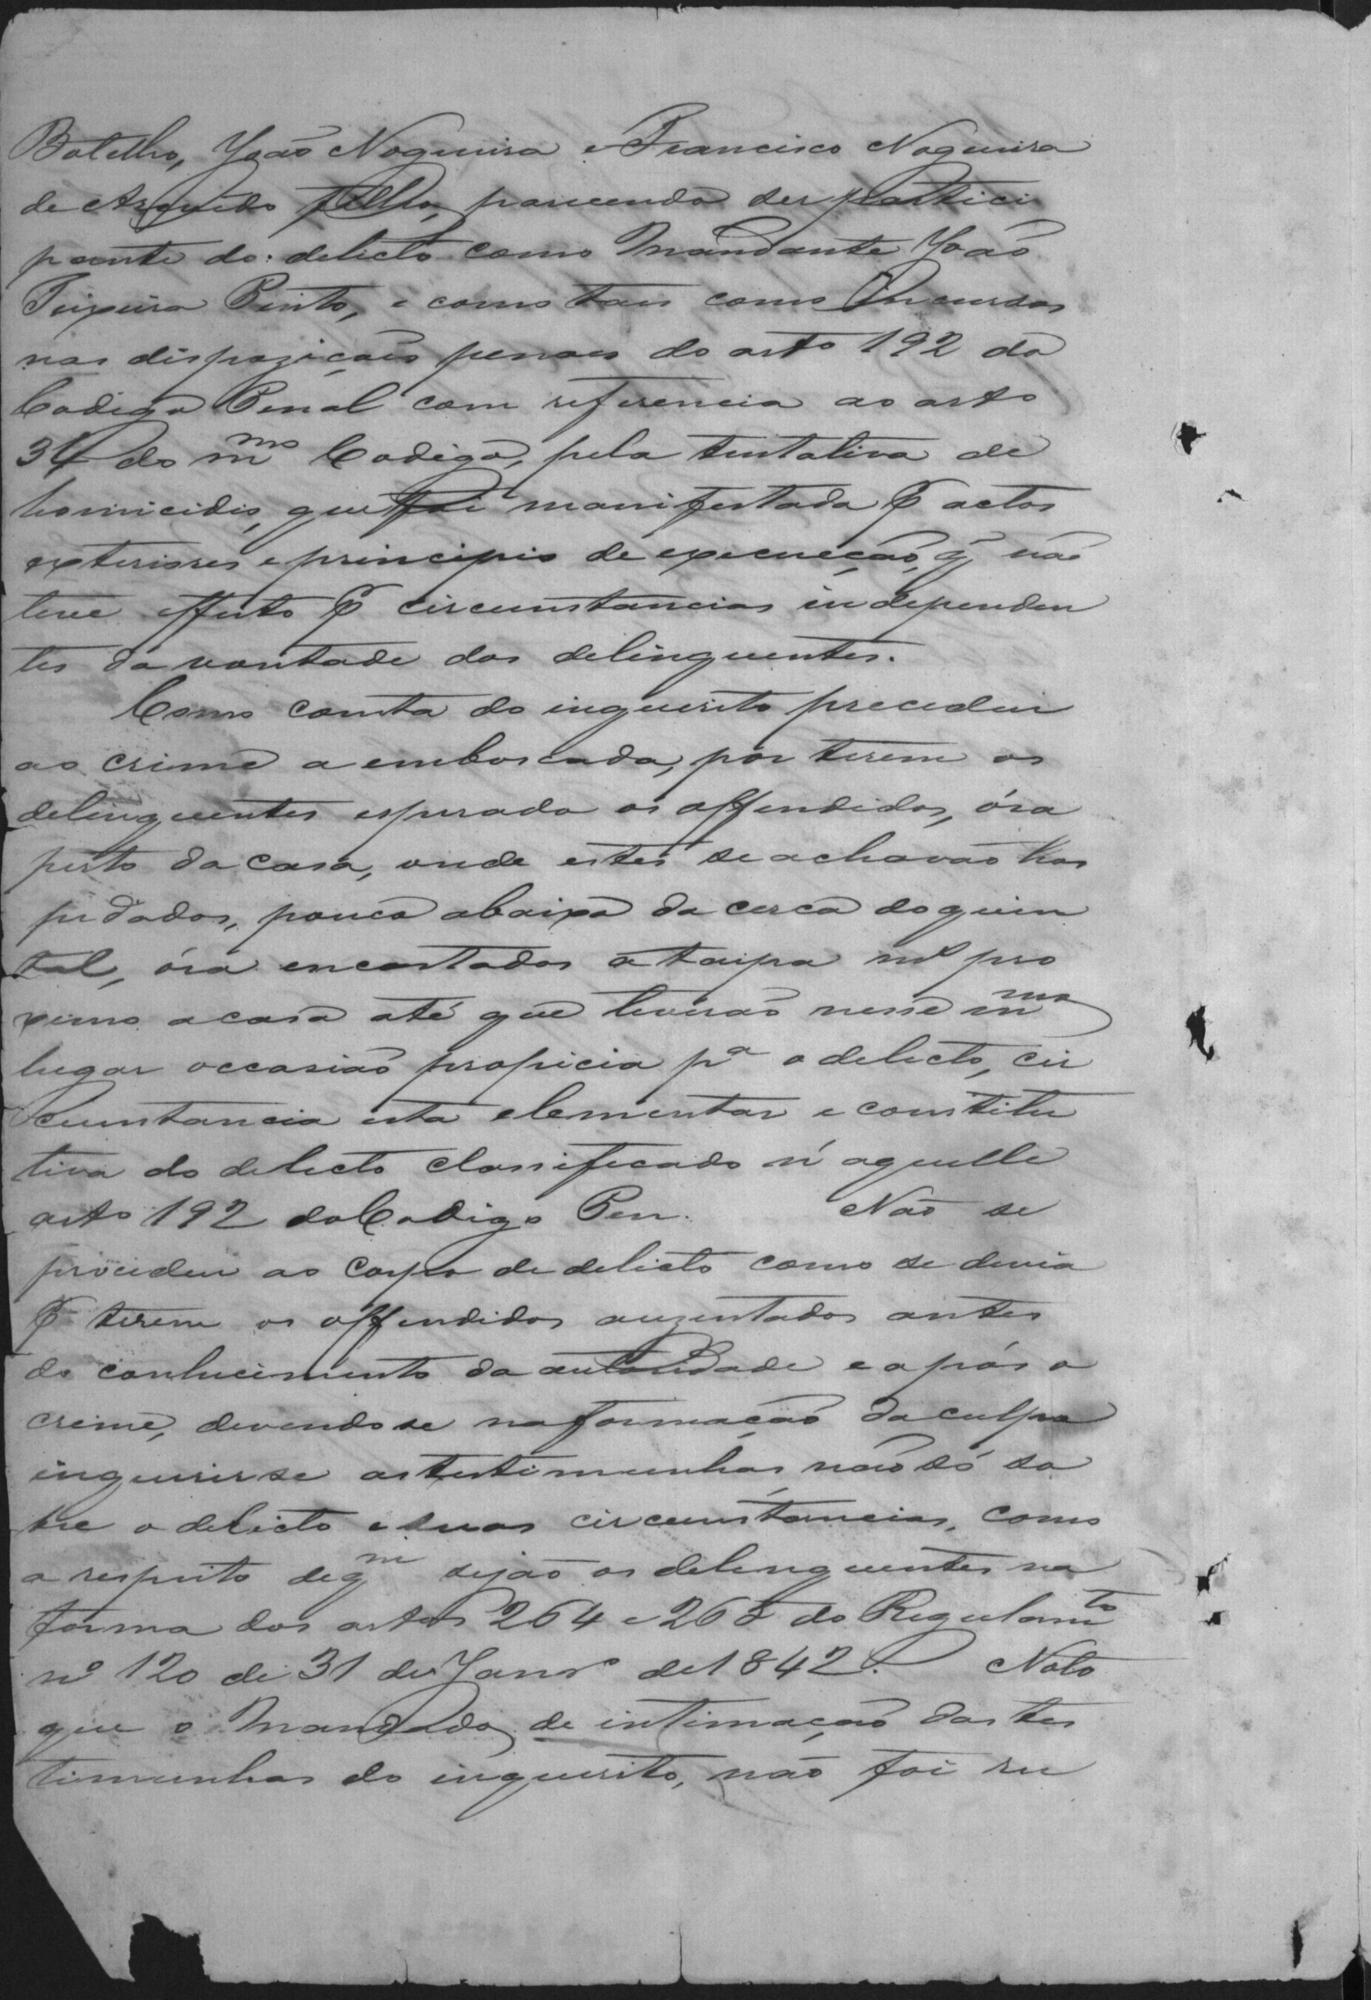 Botelho, João Nogueira e Francisco Nogueira
de Azevedo filho, parecendo ser partici
pante do delicto como Mandante João
Teixeira Pinto, e como taes como incursos
nas dispozições penaes do arto 192 do
Codigo Penal com referencia ao arto
34 do mmo Codigo, pela tentativa de
homicidio, que foi manifestada P actos
exteriores e principio de execucção, q̃ não
teve effeito P circumstancias independen
tes da vontade dos delinquentes.
Como consta do inquerito precedeu
ao crime a emboscada, por terem os
delinquentes esperado os offendidos, óra
perto da casa, onde estes se achavão hos
pedados, pouco abaixo da cerca do quin
tal, óra encostados a taipa mto pro
ximo a casa até que tiverão nesse mmo
lugar occasião propicia pa o delicto, cir
cumstancia esta elementar e constitu
tiva do delicto classificado n'aquelle
arto 192 do Codigo Pen. Não se
procedeu ao corpo de delicto como se devia
P terem os offendidos auzentados antes
do conhecimento da autoridade e após o
crime, devendo se na formação da culpa
inquerir se as testimunhas não só so
bre o delicto e suas circumstancias, como
a respeito de qm sejão os delinquentes na
forma dos artos 264 e 265 do Regulamto
no 120 de 31 de Janro de 1842. Noto
que o Mandado de intimação das tes
timunhas do inquerito, não foi su